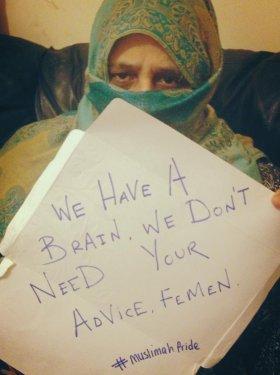 WE HAVE A
BRAIN. WE DON'T
NEED YOUR
ADVICE. FEMEN.
#muslimahPride